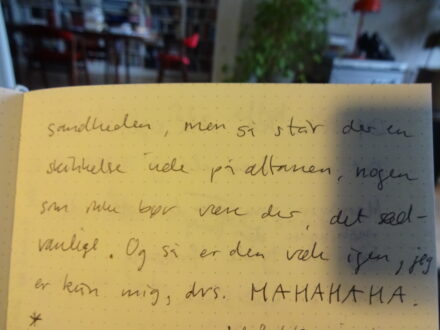 sandheden, men så står der en
skikkelse ude på altanen, nogen
som ikke bør være der, det sæd-
vanlige. Og så er den væk igen, jeg
er kun mig, dvs. MAHAHAHA.
*